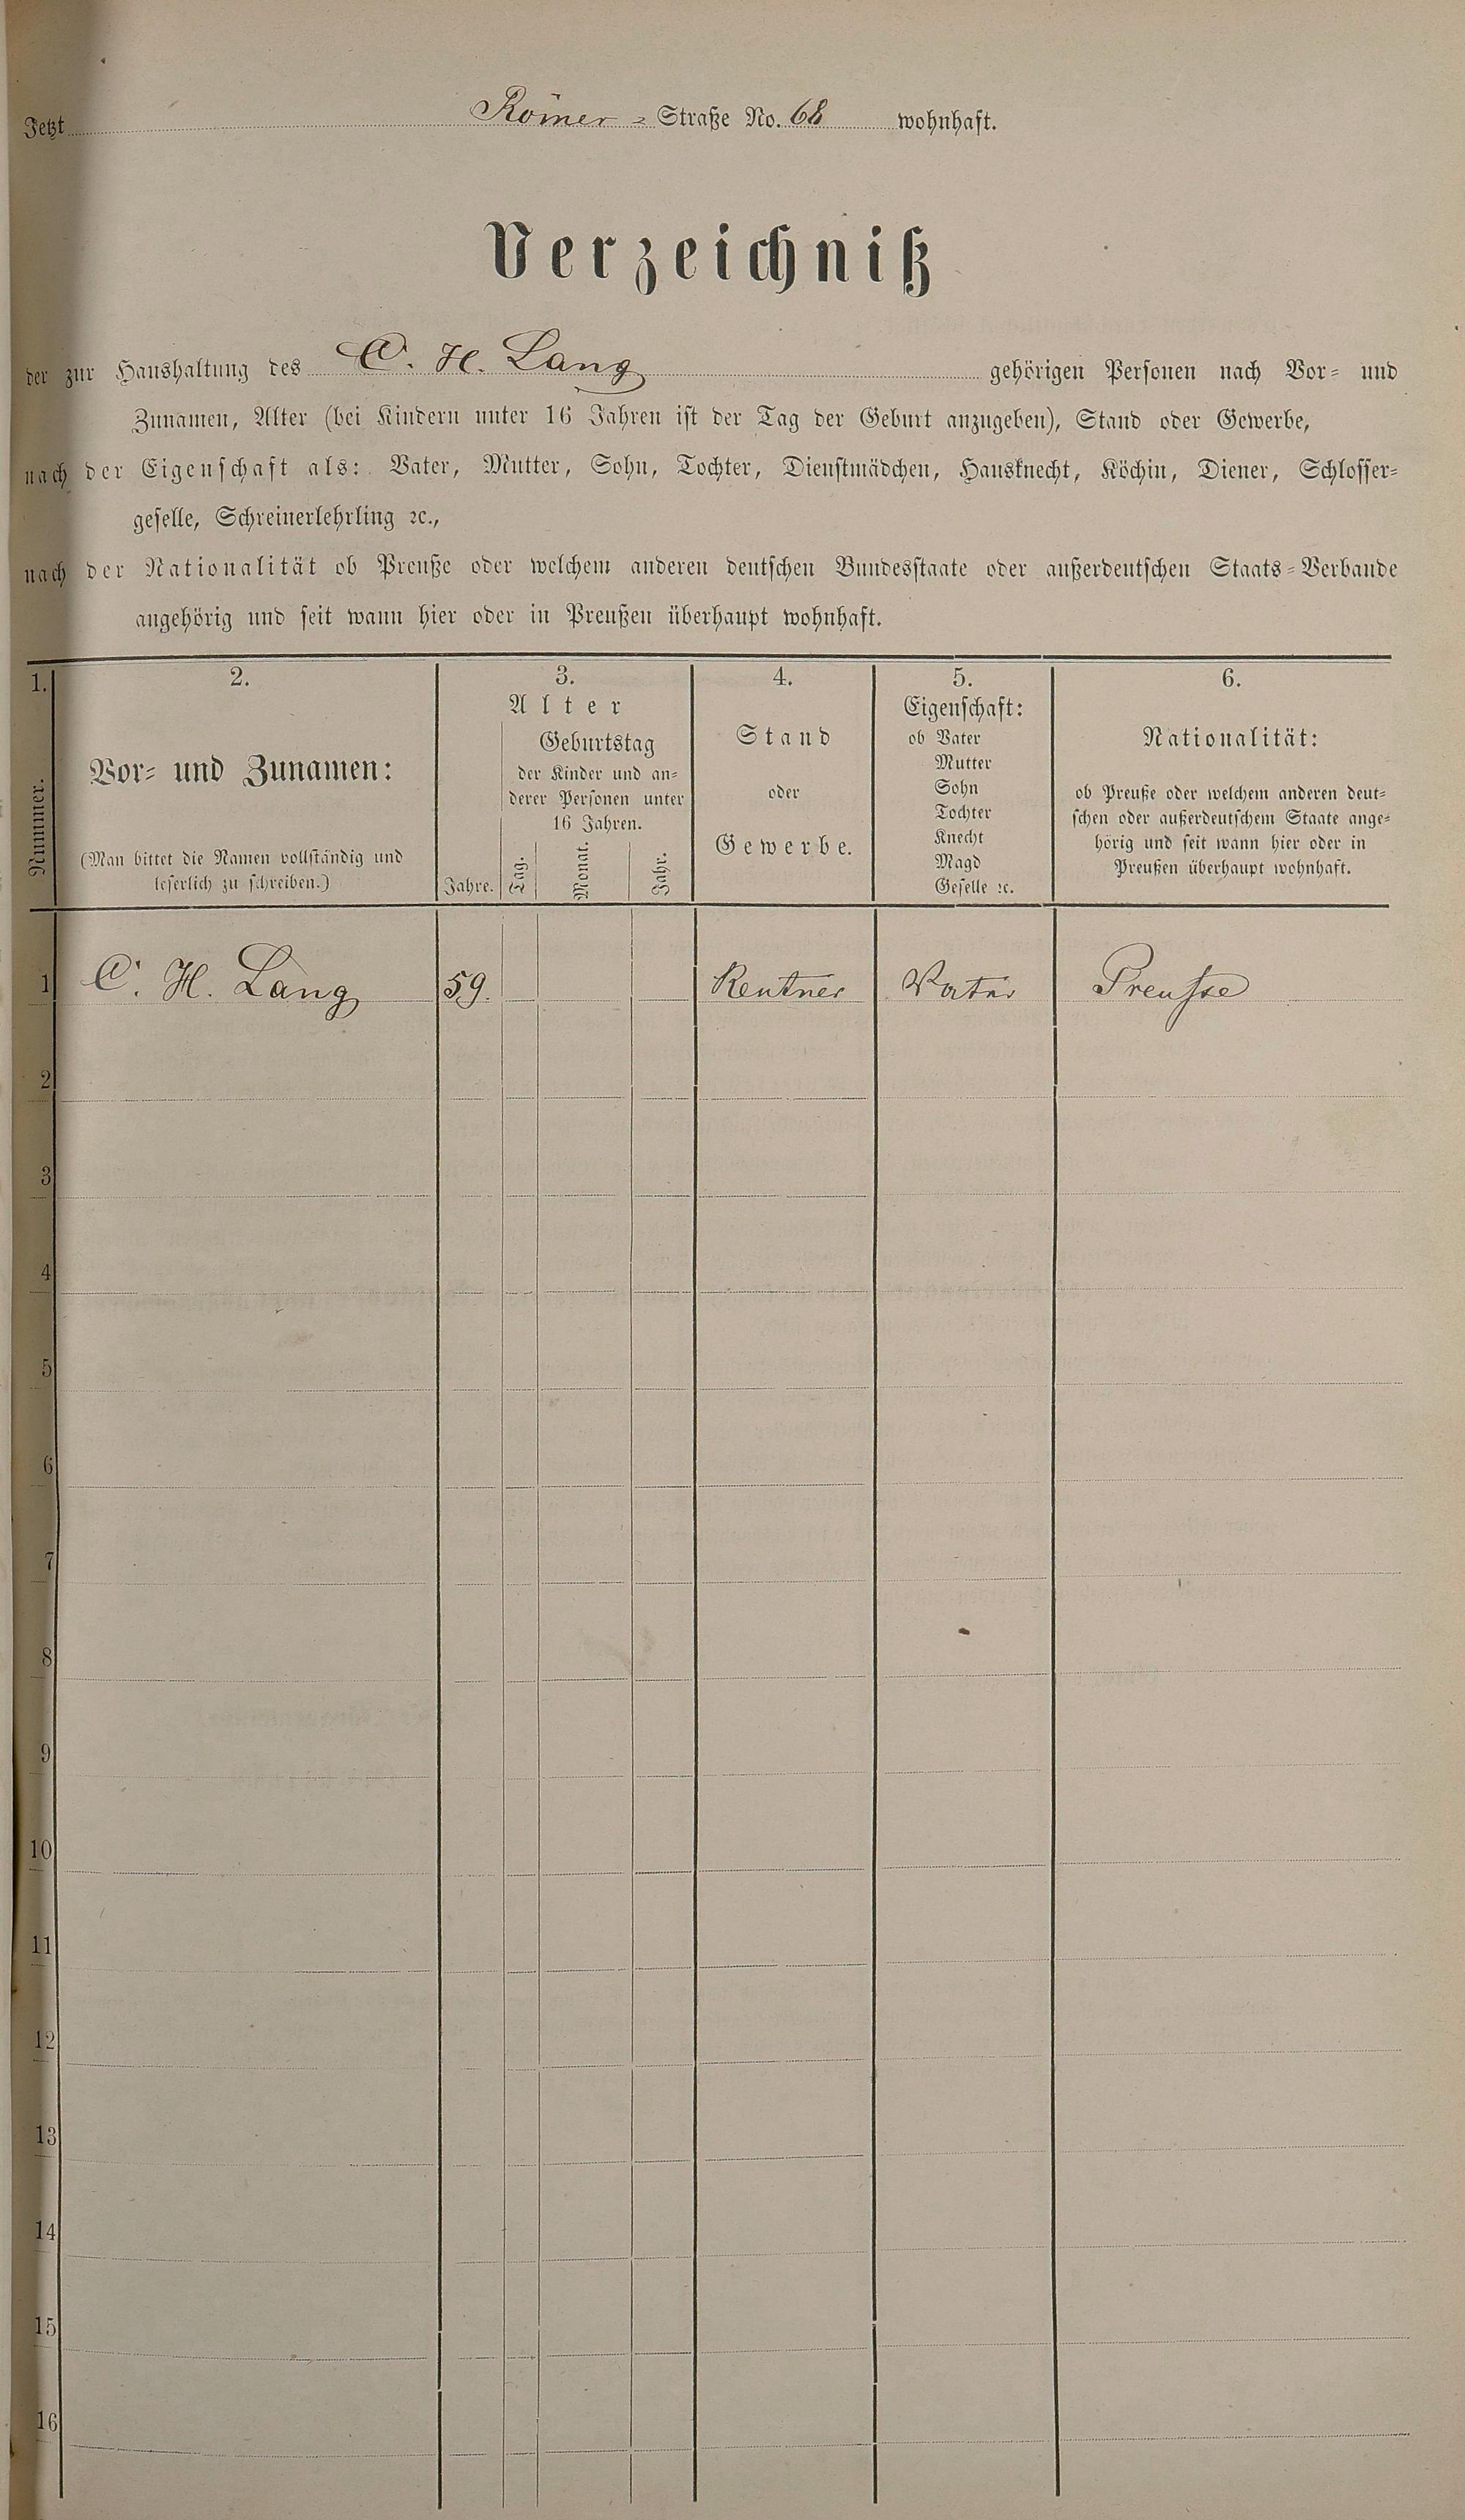 Jetzt Römer = Straße No. 68 wohnhaft.
Verzeichniß
der zur Haushaltung des C. H. Lang gehörigen Personen nach Vor= und
Zunamen, Alter (bei Kindern unter 16 Jahren ist der Tag der Geburt anzugeben), Stand oder Gewerbe,
nach der Eigenschaft als: Vater, Mutter, Sohn, Tochter, Dienstmädchen, Hausknecht, Köchin, Diener, Schlosser=
geselle, Schreinerlehrling ꝛc.,
nach der Nationalität ob Preuße oder welchem anderen deutschen Bundesstaate oder außerdeutschen Staats=Verbande
angehörig und seit wann hier oder in Preußen überhaupt wohnhaft.
1.
Nummer.
2.
Vor= und Zunamen:
(Man bittet die Namen vollständig und
leserlich zu schreiben.)
3.
Alter
Geburtstag
der Kinder und an=
derer Personen unter
16 Jahren.
Jahre. Tag. Monat. Jahr.
4.
Stand
oder
Gewerbe.
5.
Eigenschaft:
ob Vater
Mutter
Sohn
Tochter
Knecht
Magd
Geselle ꝛc.
6.
Nationalität:
ob Preuße oder welchem anderen deut=
schen oder außerdeutschem Staate ange=
hörig und seit wann hier oder in
Preußen überhaupt wohnhaft.
1 C. H. Lang 59. Rentner Vater Preusse
2
3
4
5
6
7
8
9
10
11
12
13
14
15
16